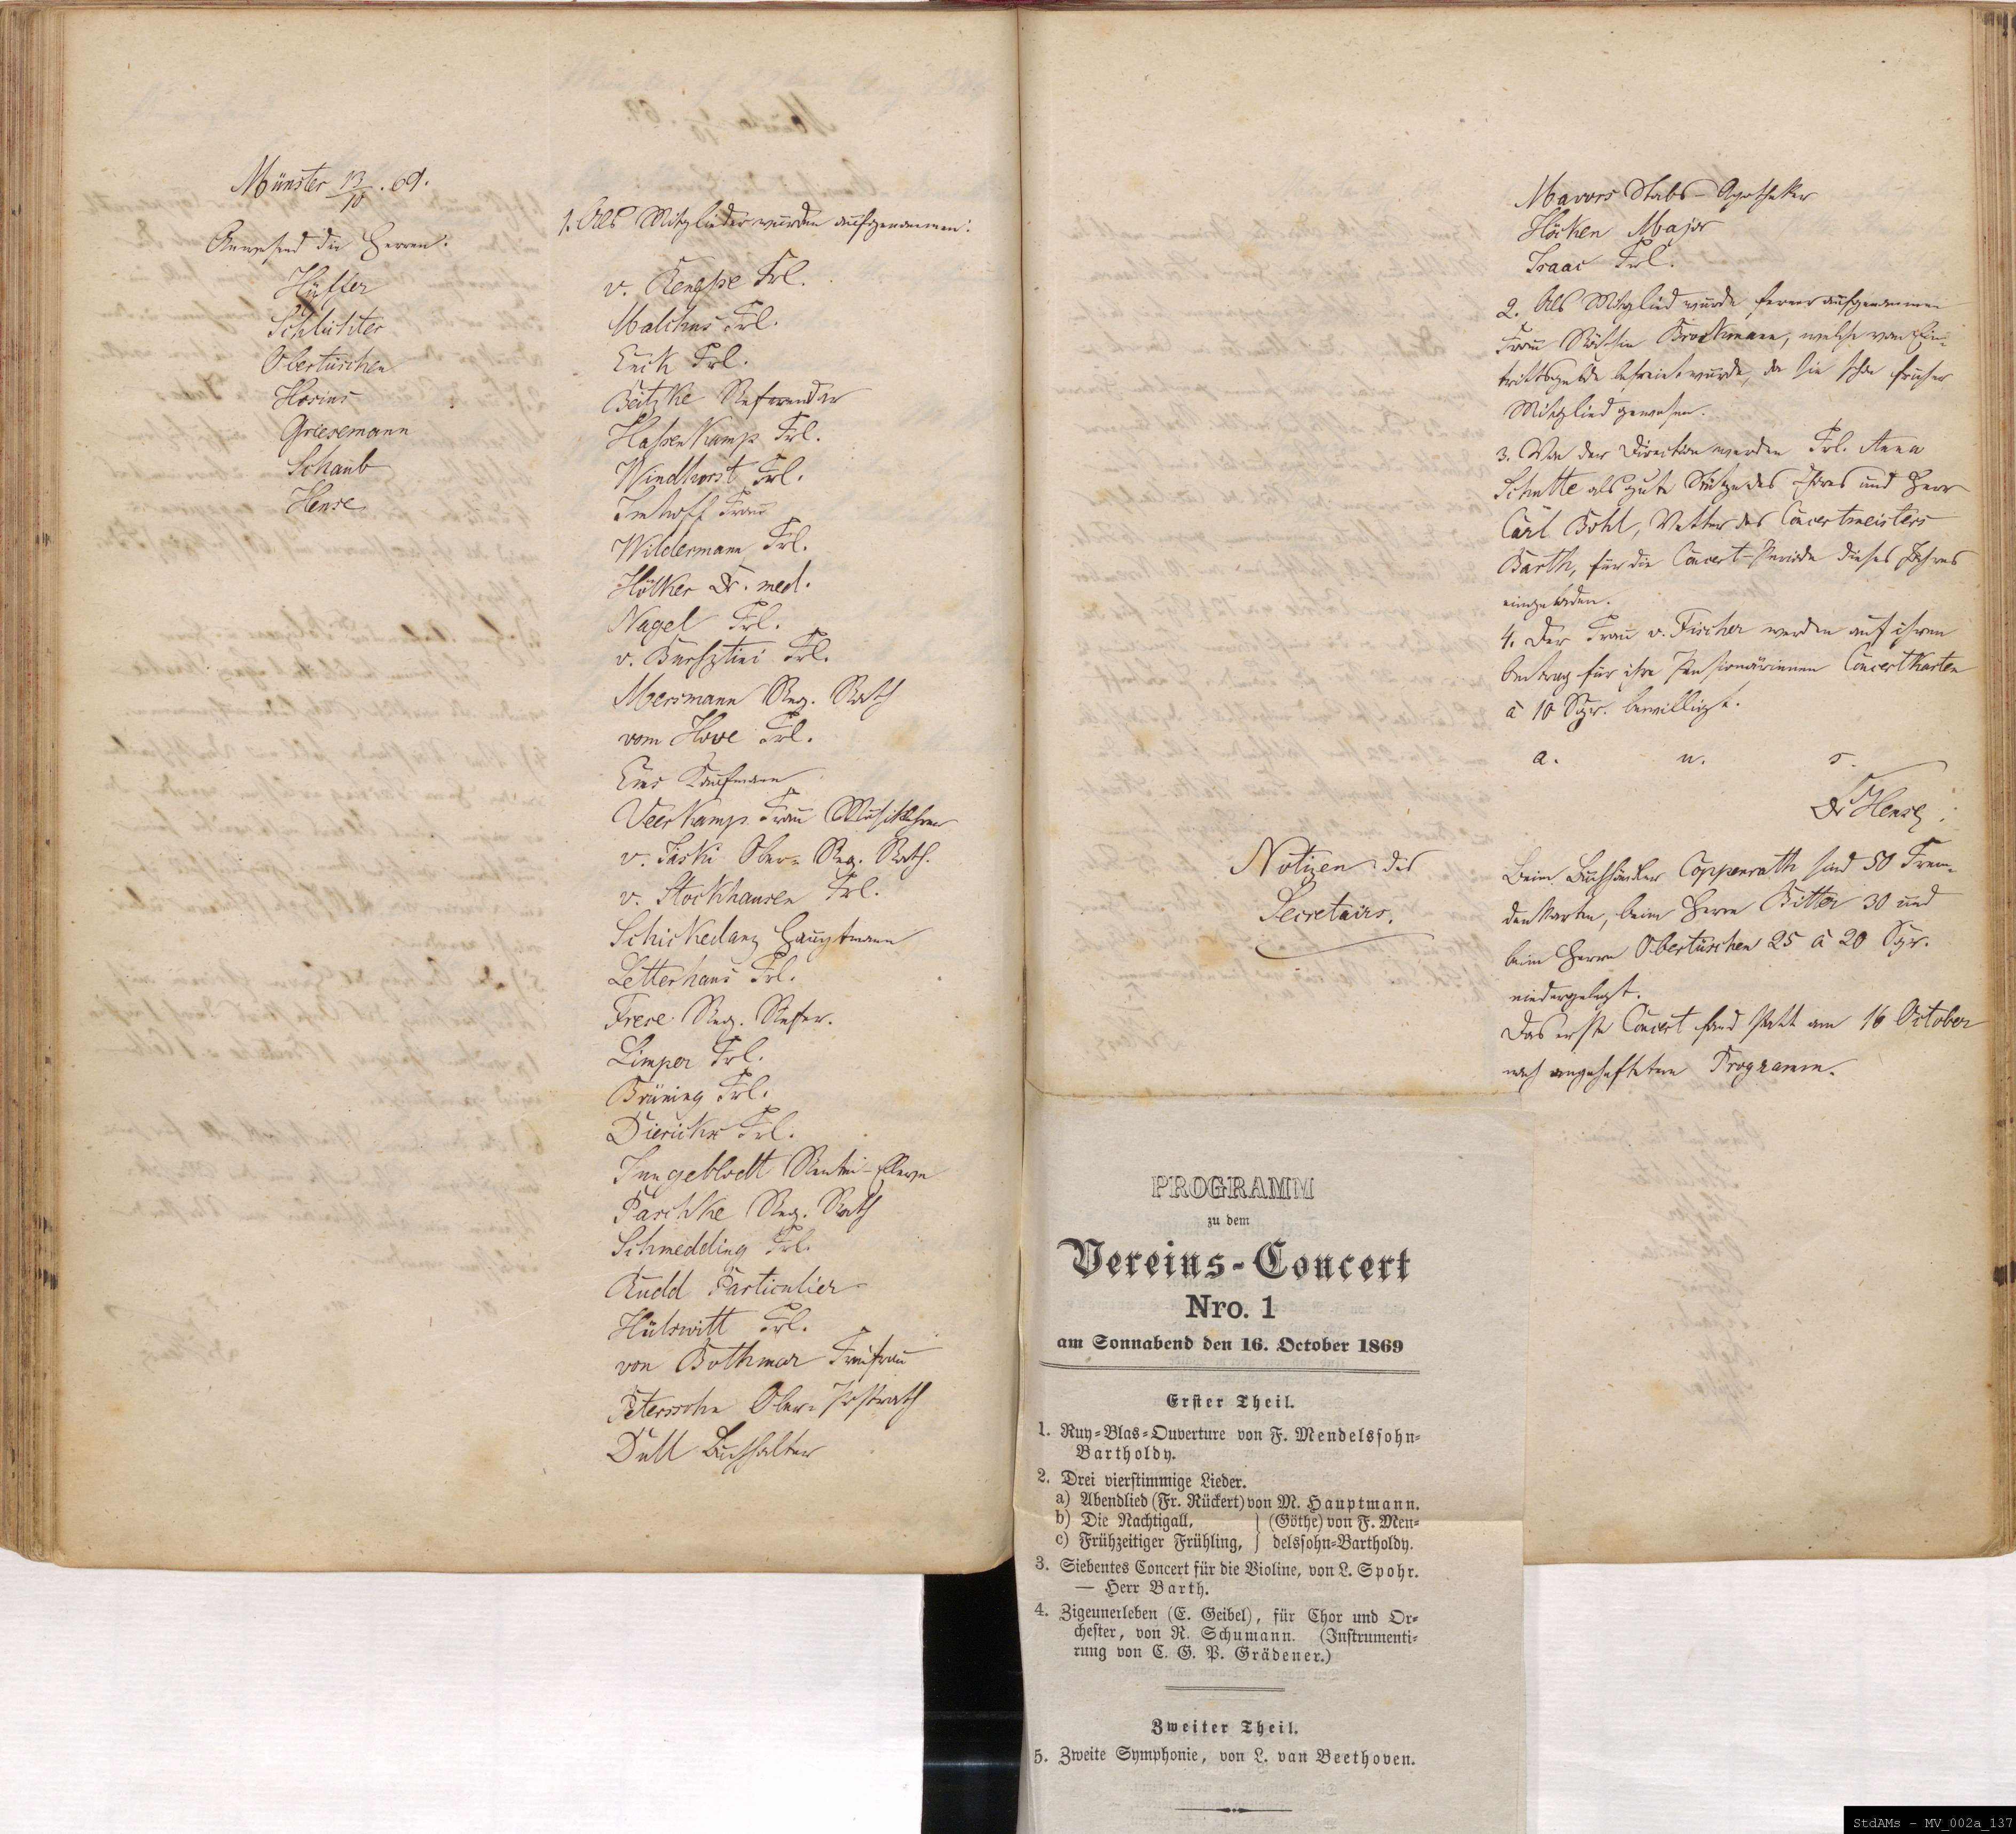 Münster 13/10. 69.
Anwesend die Herren:
Hüffer
Schlichter
Obertüschen
Hosius
Griesemann
Schaub
Hense
1. Als Mitglieder wurden aufgenommen:
v. Frl.
Malchus Frl.
Frl.
Beitzke Referendar
Hassenkamp Frl.
Windhorst Frl.
Imhoff Frau
Wildermann Frl.
Hölker Dr. med.
Nagel Frl.
v. Frl.
Mersmann Reg. Rath
vom Hove Frl.
Kaufmann
Veerkamp Frau Musiklehrer
v. Ober-Reg. Rath.
v. Stockhausen Frl.
Schickedanz Hauptmann
Letterhaus Frl.
Frese Reg. Refer.
Limper Frl.
Brüning Frl.
Dierickx Frl.
Jungeblodt Rentei-Eleve
Paschke Reg. Rath
Schmedding Frl.
Budd Particulier
Hülswitt Frl.
von Bothmar Freifrau
Peterssohn Ober-Postrath
Dull Buchhalter
Mavors Stabs-Apotheker
Höcken Major
Isaac Frl.
2. Als Mitglied wurde ferner aufgenommen
Frau Räthin Brockmann, welche vom Ein-
trittsgelde befreit wurde, da sie schon früher
Mitglied gewesen.
3. Von der Direction werden Frl. Anna
Schutte als gute Stütze des Chores und Herr
Carl Bohl, Vetter des Concertmeisters
Barth, für die Concert-Periode dieses Jahres
eingeladen.
4. Der Frau v. Fischer werden auf ihren
Antrag für ihre Pensionärinnen Concertkarten
à 10 Sgr. bewilligt.
a. u. s.
Dr Hense
Notizen des
Secretairs.
Beim Buchhändler Coppenrath sind 50 Frem-
denkarten, beim Herrn Bitter 30 und
beim Herrn Obertüschen 25 à 20 Sgr.
niedergelegt.
Das erste Concert fand statt am 16 October
nach angeheftetem Programm.
PROGRAMM
zu dem
Vereins-Concert
Nro. 1
am Sonnabend den 16. October 1869
Erster Theil.
1. Ruy-Blas-Ouverture von F. Mendelssohn-
Bartholdy.
2. Drei vierstimmige Lieder.
a) Abendlied (Fr. Rückert) von M. Hauptmann.
b) Die Nachtigall, } (Göthe) von F. Men-
c) Frühzeitiger Frühling, } delssohn-Bartholdy.
3. Siebentes Concert für die Violine, von L. Spohr.
— Herr Barth.
4. Zigeunerleben (E. Geibel), für Chor und Or-
chester, von R. Schumann. (Instrumenti-
rung von C. G. P. Grädener.)
Zweiter Theil.
5. Zweite Symphonie, von L. van Beethoven.
StdAMs - MV_002a_137